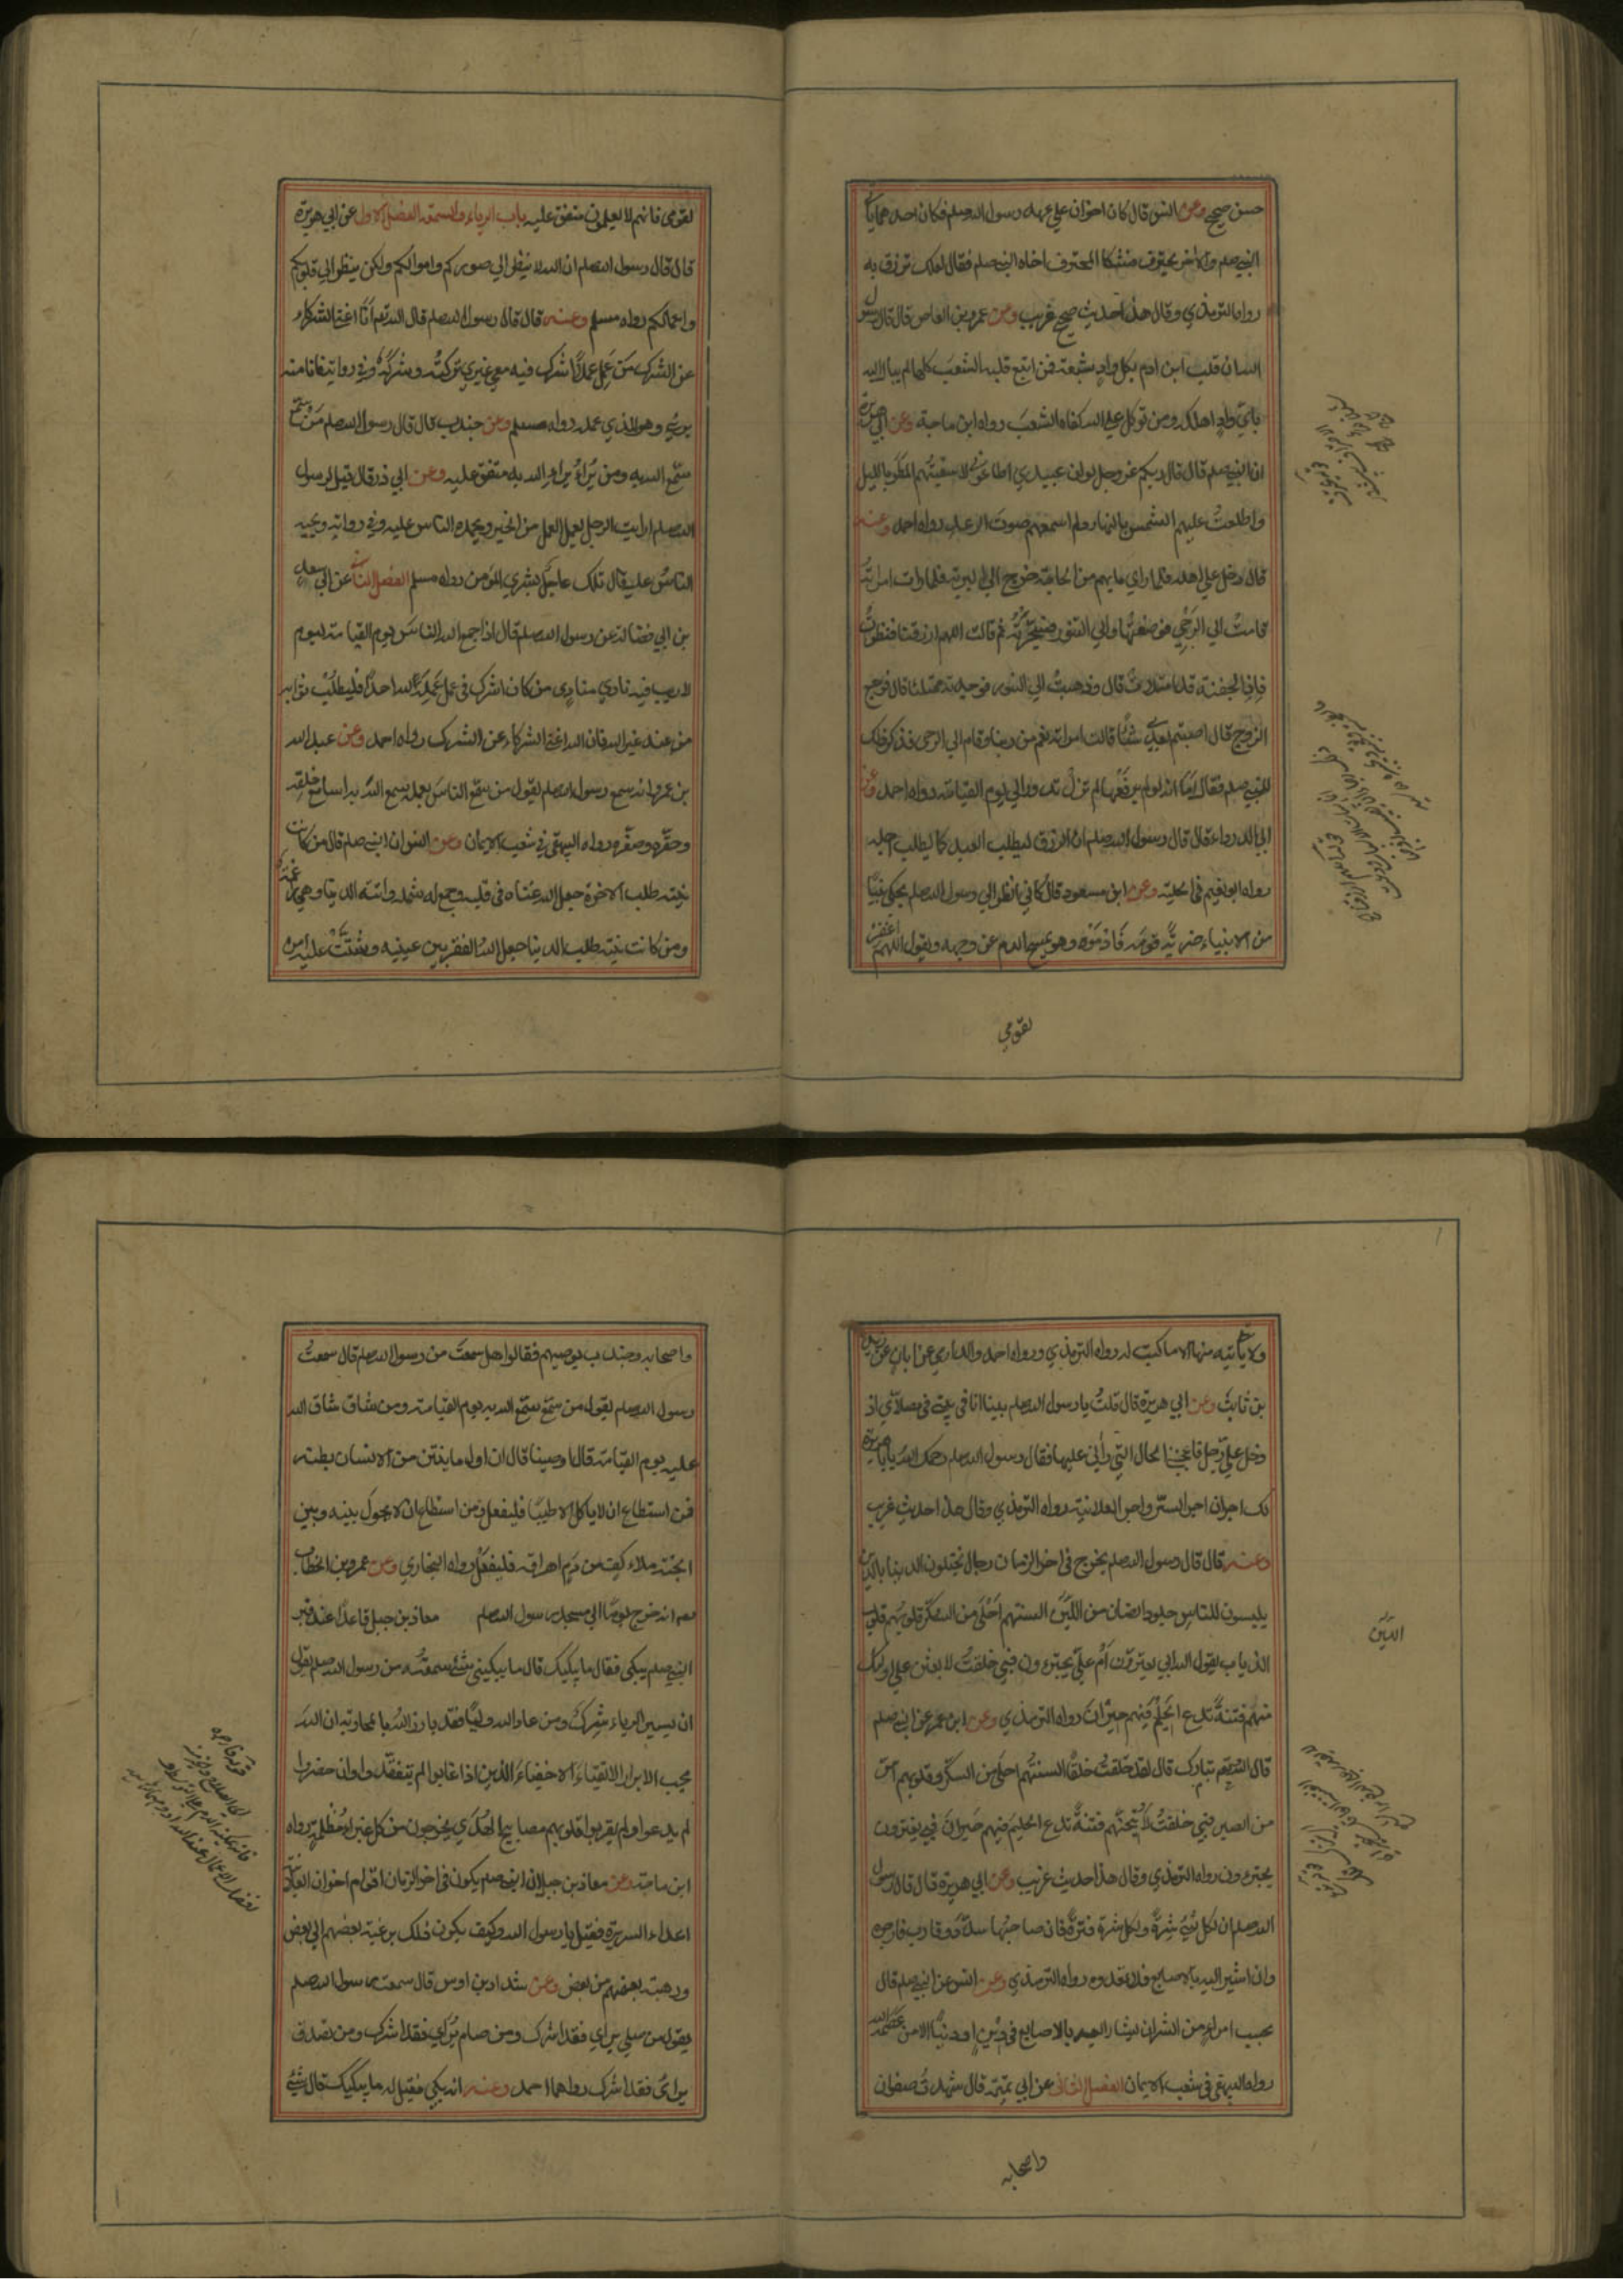 حسن صحيح وعن انس قال كان اخوان علي عهد رسول الله صلم فكان احدهما ياتي
النبي صلم والاخر يحترف فشكا المحترف اخاه النبي صلم فقال لعلك ترزق به
رواه الترمذي وقال هذا حديث صحيح غريب وعن عمرو بن العاص قال قال رسول
الله ان قلب ابن ادم بكل واد شعبة فمن اتبع قلبه الشعب كلها لم يبال الله
باي واد اهلكه ومن توكل علي الله كفاه الشعب رواه ابن ماجة وعن ابي هريرة
ان النبي صلم قال قال ربكم عز وجل لو ان عبيدي اطاعوني لاسقيتهم المطر بالليل
واطلعت عليهم الشمس بالنهار ولم اسمعهم صوت الرعد رواه احمد وعنه
قال دخل علي اهله فلما راي ما بهم من الحاجة خرج الي البرية فلما رات امراته
قامت الي الرحي فوضعتها والي التنور فسجرته ثم قالت اللهم ارزقنا فنظرت
فاذا الجفنة قد امتلات قال وذهبت الي التنور فوجدته ممتلئا قال فرجع
الزوج قال اصبتم بعدي شئا قالت امراته نعم من ربنا وقام الي الرحي فذكر ذلك
للنبي صلم فقال اما انه لو لم يرفعها لم تزل تدور الي يوم القيامة رواه احمد وعن
ابي الدرداء قال قال رسول الله صلم ان الرزق ليطلب العبد كما يطلبه اجله
رواه ابو نعيم في الحلية وعن ابن مسعود قال كاني انظر الي رسول الله صلم يحكي نبيا
من الانبياء ضربه قومه فادموه وهو يمسح الدم عن وجهه ويقول اللهم اغفر
لقومي
لقومي فانهم لا يعلمون متفق عليه باب الرياء والسمعة الفصل الاول عن ابي هريرة
قال قال رسول الله صلم ان الله لا ينظر الي صوركم واموالكم ولكن ينظر الي قلوبكم
واعمالكم رواه مسلم وعنه قال قال رسول الله صلم قال الله تعم انا اغني الشركاء
عن الشرك من عمل عملا اشرك فيه معي غيري تركته وشركه وفي رواية فانا منه
بريء وهو للذي عمله رواه مسلم وعن جندب قال قال رسول الله صلم من سمع
سمع الله به ومن يراء يراء الله به متفق عليه وعن ابي ذر قال قيل لرسول
الله صلم ارايت الرجل يعمل العمل من الخير ويحمده الناس عليه وفي رواية ويحبه
الناس عليه قال تلك عاجل بشري المؤمن رواه مسلم الفصل الثاني عن ابي سعد
بن ابي فضالة عن رسول الله صلم قال اذا جمع الله الناس يوم القيامة ليوم
لا ريب فيه نادي مناد من كان اشرك في عمل عمله لله احدا فليطلب ثوابه
من عند غير الله فان الله اغني الشركاء عن الشرك رواه احمد وعن عبد الله
بن عمرو انه سمع رسول الله صلم يقول من سمع الناس بعمله سمع الله به اسامع خلقه
وحقره وصغره رواه البيهقي في شعب الايمان وعن انس ان النبي صلم قال من كانت
نيته طلب الاخرة جعل الله غناه في قلبه وجمع له شمله واتته الدنيا وهي راغمة
ومن كانت نيته طلب الدنيا جعل الله الفقر بين عينيه وشتت عليه امره
ولا ياتيه منها الا ما كتب له رواه الترمذي ورواه احمد والدارمي عن ابان عن زيد
بن ثابت وعن ابي هريرة قال قلت يا رسول الله صلم بينا انا في بيتي في مصلاي اذ
دخل علي رجل فاعجبني الحال التي راني عليها فقال رسول الله صلم رحمك الله يا ابا هريرة
لك اجران اجر السر واجر العلانية رواه الترمذي وقال هذا حديث غريب
وعنه قال قال رسول الله صلم يخرج في اخر الزمان رجال يختلون الدنيا بالدين
يلبسون للناس جلود الضان من اللين السنتهم احلي من السكر قلوبهم قلوب
الذياب يقول الله ابي يغترون ام علي يجترءون فبي حلفت لابعثن علي اولئك
منهم فتنة تدع الحليم فيهم حيران رواه الترمذي وعن ابن عمر عن النبي صلم
قال ان الله تبارك قال لقد خلقت خلقا السنتهم احلي من السكر وقلوبهم امر
من الصبر فبي حلفت لاتيحنهم فتنة تدع الحليم فيهم حيران فبي يغترون
يجترءون رواه الترمذي وقال هذا حديث غريب وعن ابي هريرة قال قال رسول
الله صلم ان لكل شيء شرة ولكل شرة فترة فان صاحبها سدد وقارب فارجوه
وان اشير اليه بالاصابع فلا تعدوه رواه الترمذي وعن انس عن النبي صلم قال
بحسب امرء من الشر ان يشار اليه بالاصابع في دين او دنيا الا من عصمه الله
رواه البيهقي في شعب الايمان الفصل الثالث عن ابي تميمة قال شهدت صفوان
اللين
واصحابه
واصحابه وجندب يوصيهم فقالوا هل سمعت من رسول الله صلم قال سمعت
رسول الله صلم يقول من سمع سمع الله به يوم القيامة ومن شاق شاق الله
عليه يوم القيامة قالوا اوصينا قال ان اول ما ينتن من الانسان بطنه
فمن استطاع ان لا ياكل الا طيبا فليفعل ومن استطاع ان لا يحول بينه وبين
الجنة ملاء كف من دم اهراقه فليفعل رواه البخاري وعن عمر بن الخطاب
انه خرج يوما الي مسجد رسول الله صلم معاذ بن جبل قاعدا عند قبر
النبي صلم يبكي فقال ما يبكيك قال ما يبكيني شيء سمعته من رسول الله صلم يقول
ان يسير الرياء شرك ومن عاد لله وليا فقد بارز الله بالمحاربة ان الله
يحب الابرار الاتقياء الاخفياء الذين اذا غابوا لم يتفقدوا وان حضروا
لم يدعوا ولم يقربوا قلوبهم مصابيح الهدي يخرجون من كل غبراء مظلمة رواه
ابن ماجة وعن معاذ بن جبل ان النبي صلم يكون في اخر الزمان اقوام اخوان العلانية
اعداء السريرة فقيل يا رسول الله وكيف يكون ذلك برغبة بعضهم الي بعض
ورهبة بعضهم من بعض وعن شداد بن اوس قال سمعت رسول الله صلم
يقول من صلي يراي فقد اشرك ومن صام يراي فقد اشرك ومن تصدق
يراي فقد اشرك رواهما احمد وعنه انه بكي فقيل له ما يبكيك قال شيء